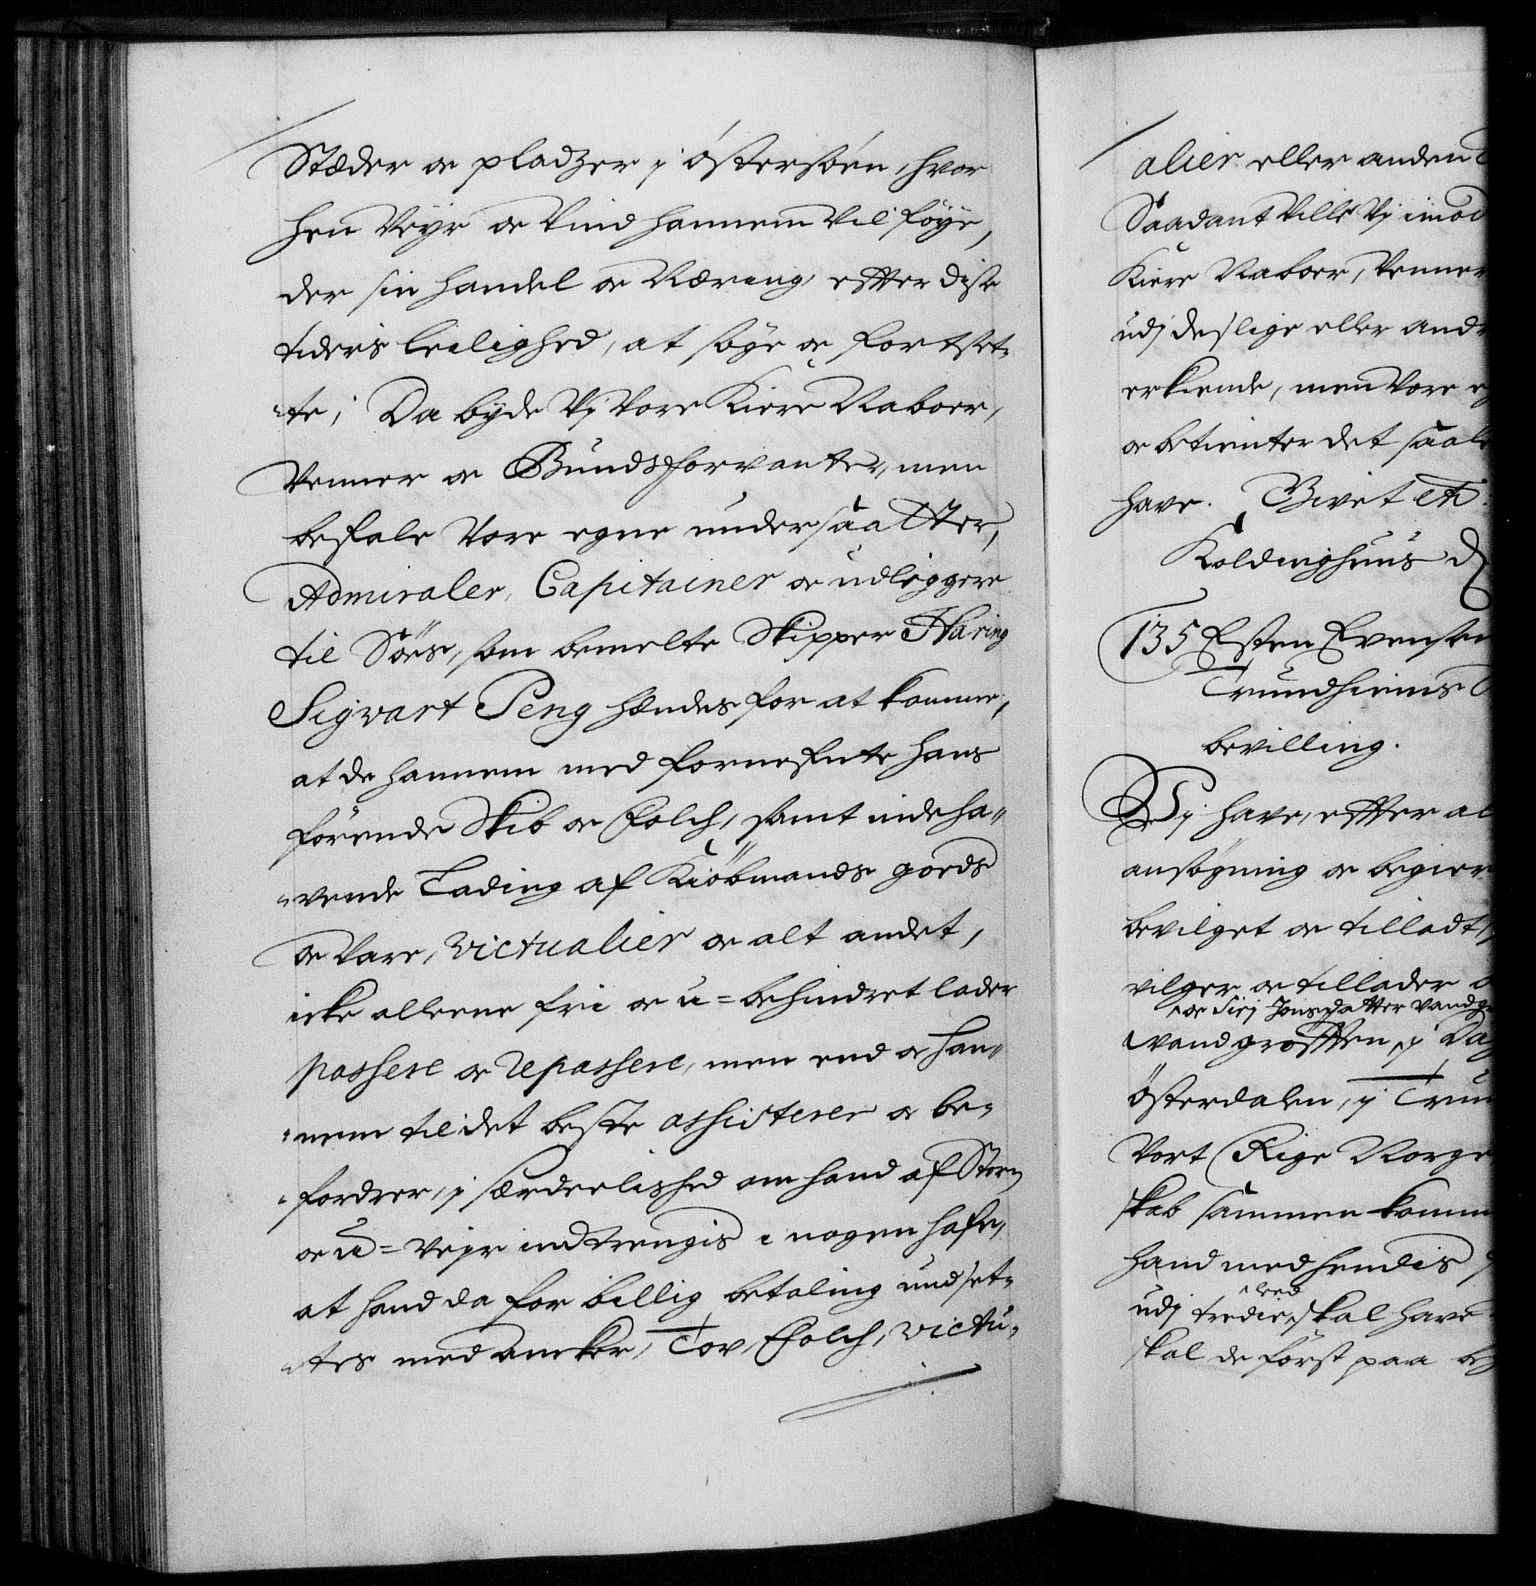 Stæder oc pladzer i østersøen, hvor
hen Veyr oc Vind hannem vil føye,
der sin handel oc Næring, effter disse
tiders leilighed, at søge oc fortset-
-te; Da byde Vj Vore Kiere Naboer,
Venner oc Bundsforvanter, men
befale Vore egne undersaatter,
Admiraler, Capitainer oc udliggere
til Søes, som bemelte Skipper Haring
Sigvart Peng hændes for at komme,
at de hannem med fornefnte hans
førende Skib oc Folch, samt indeha-
-vende Lading af Kiøbmands goeds
oc Vare, Victualier oc alt andet,
icke alleene fri oc u-behindret lader
passere oc repassere, men end oc han-
-nem til det beste assisterer oc be-
-fordrer, i særdeelished om hand af Storm
oc u-Veyr indtrengis i nogen hafn,
at hand da for billig betaling undset-
-tes med Ancker, Tov, Folch, victu-
alier eller anden
Saadant Ville Vj imod
Kiere Naboer, Venner
udj deslige eller andre
erkiende, men Vore eg
oc betienter det saale
have. Givet etc:
Koldinghuus d
135 Esten Evensen
Trundhiems
bevilling.
Vj have, effter al
ansøgning oc begier
bevilget oc tilladt,
vilger oc tillader
oc Sirj Jonsdatter Vandgr
Vandgrøfften, i Da
Østerdalen, i Trun
Vort Rige Norge
skab sammen komme
hand med hendis
udj tredie leed skal have
skal de først paa be